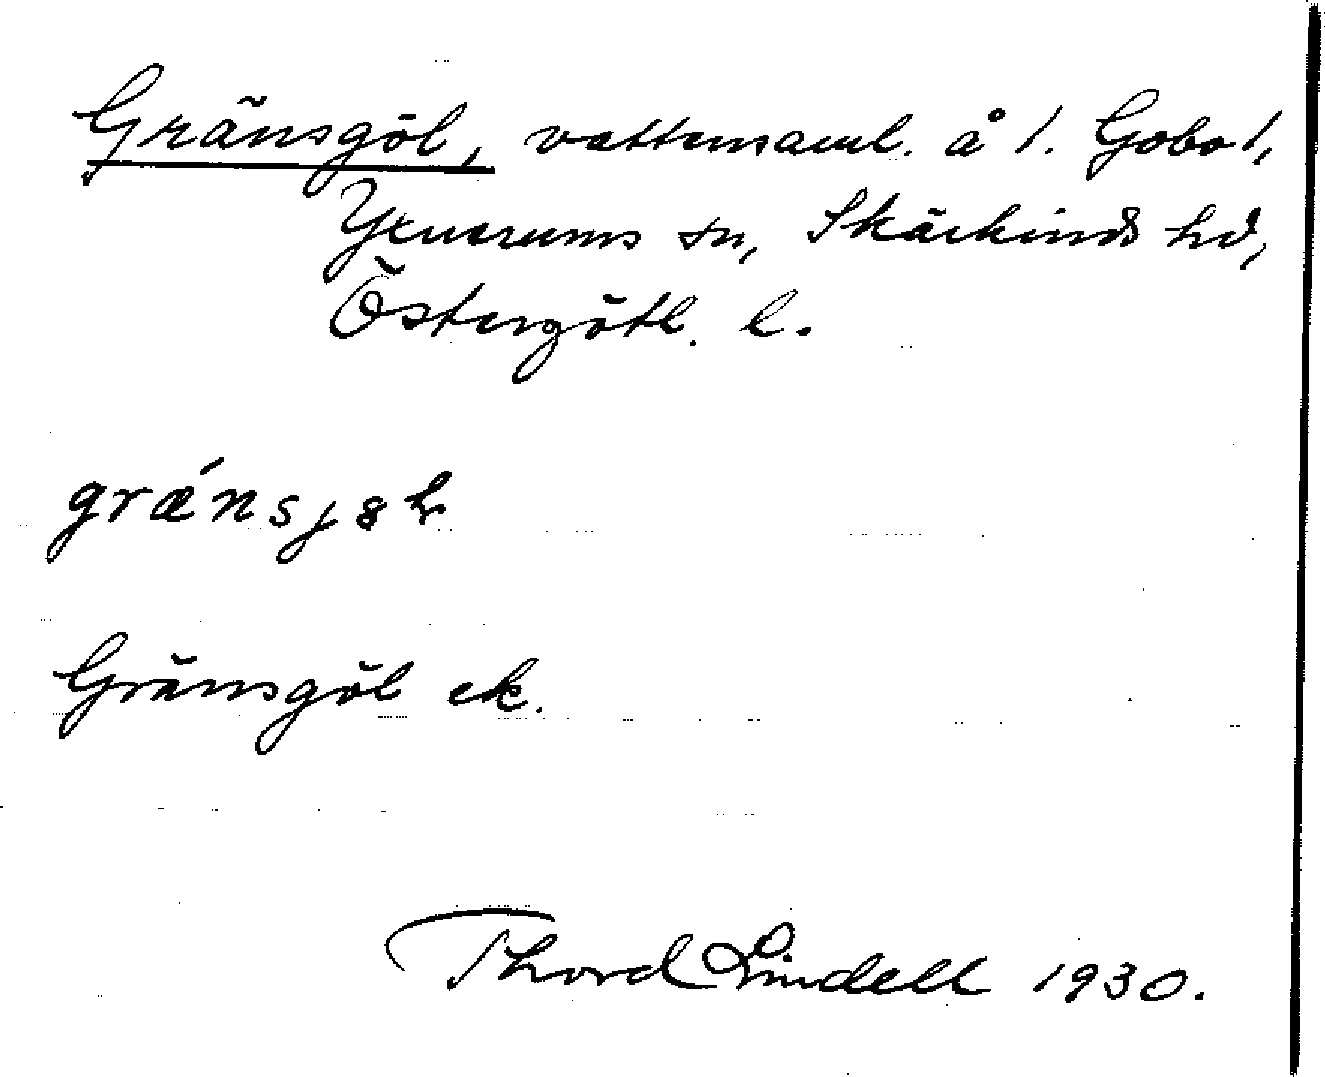 Gränsgöl, vattensaml. å 1. Gobo 1,
Yxnerums sn, Skärkinds hd,
Östergötl. l.
grǽnsjöl
Gränsgöl ek.
Thord Lindell 1930.